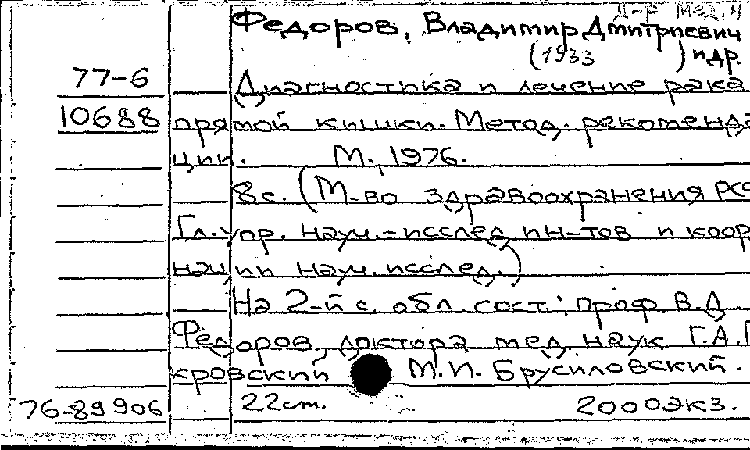 д-р мед. н
Федоров, Владимир Дмитриевич
(1933 ) и др.
77-6 Диагностика и лечение рака
10688 прямой кишки. Метод. рекоменда
ции. М., 1976.
8 с. (М-во здравоохранения РСФ
Гл. упр. науч.-исслед. ин-тов и коор
нации науч. исслед.)
На 2-й с. обл. сост.: проф. В.Д.
Федоров, доктора мед. наук Г.А. П
кровский М.И. Брусиловский.
76-89906 22 см. 2000 экз.